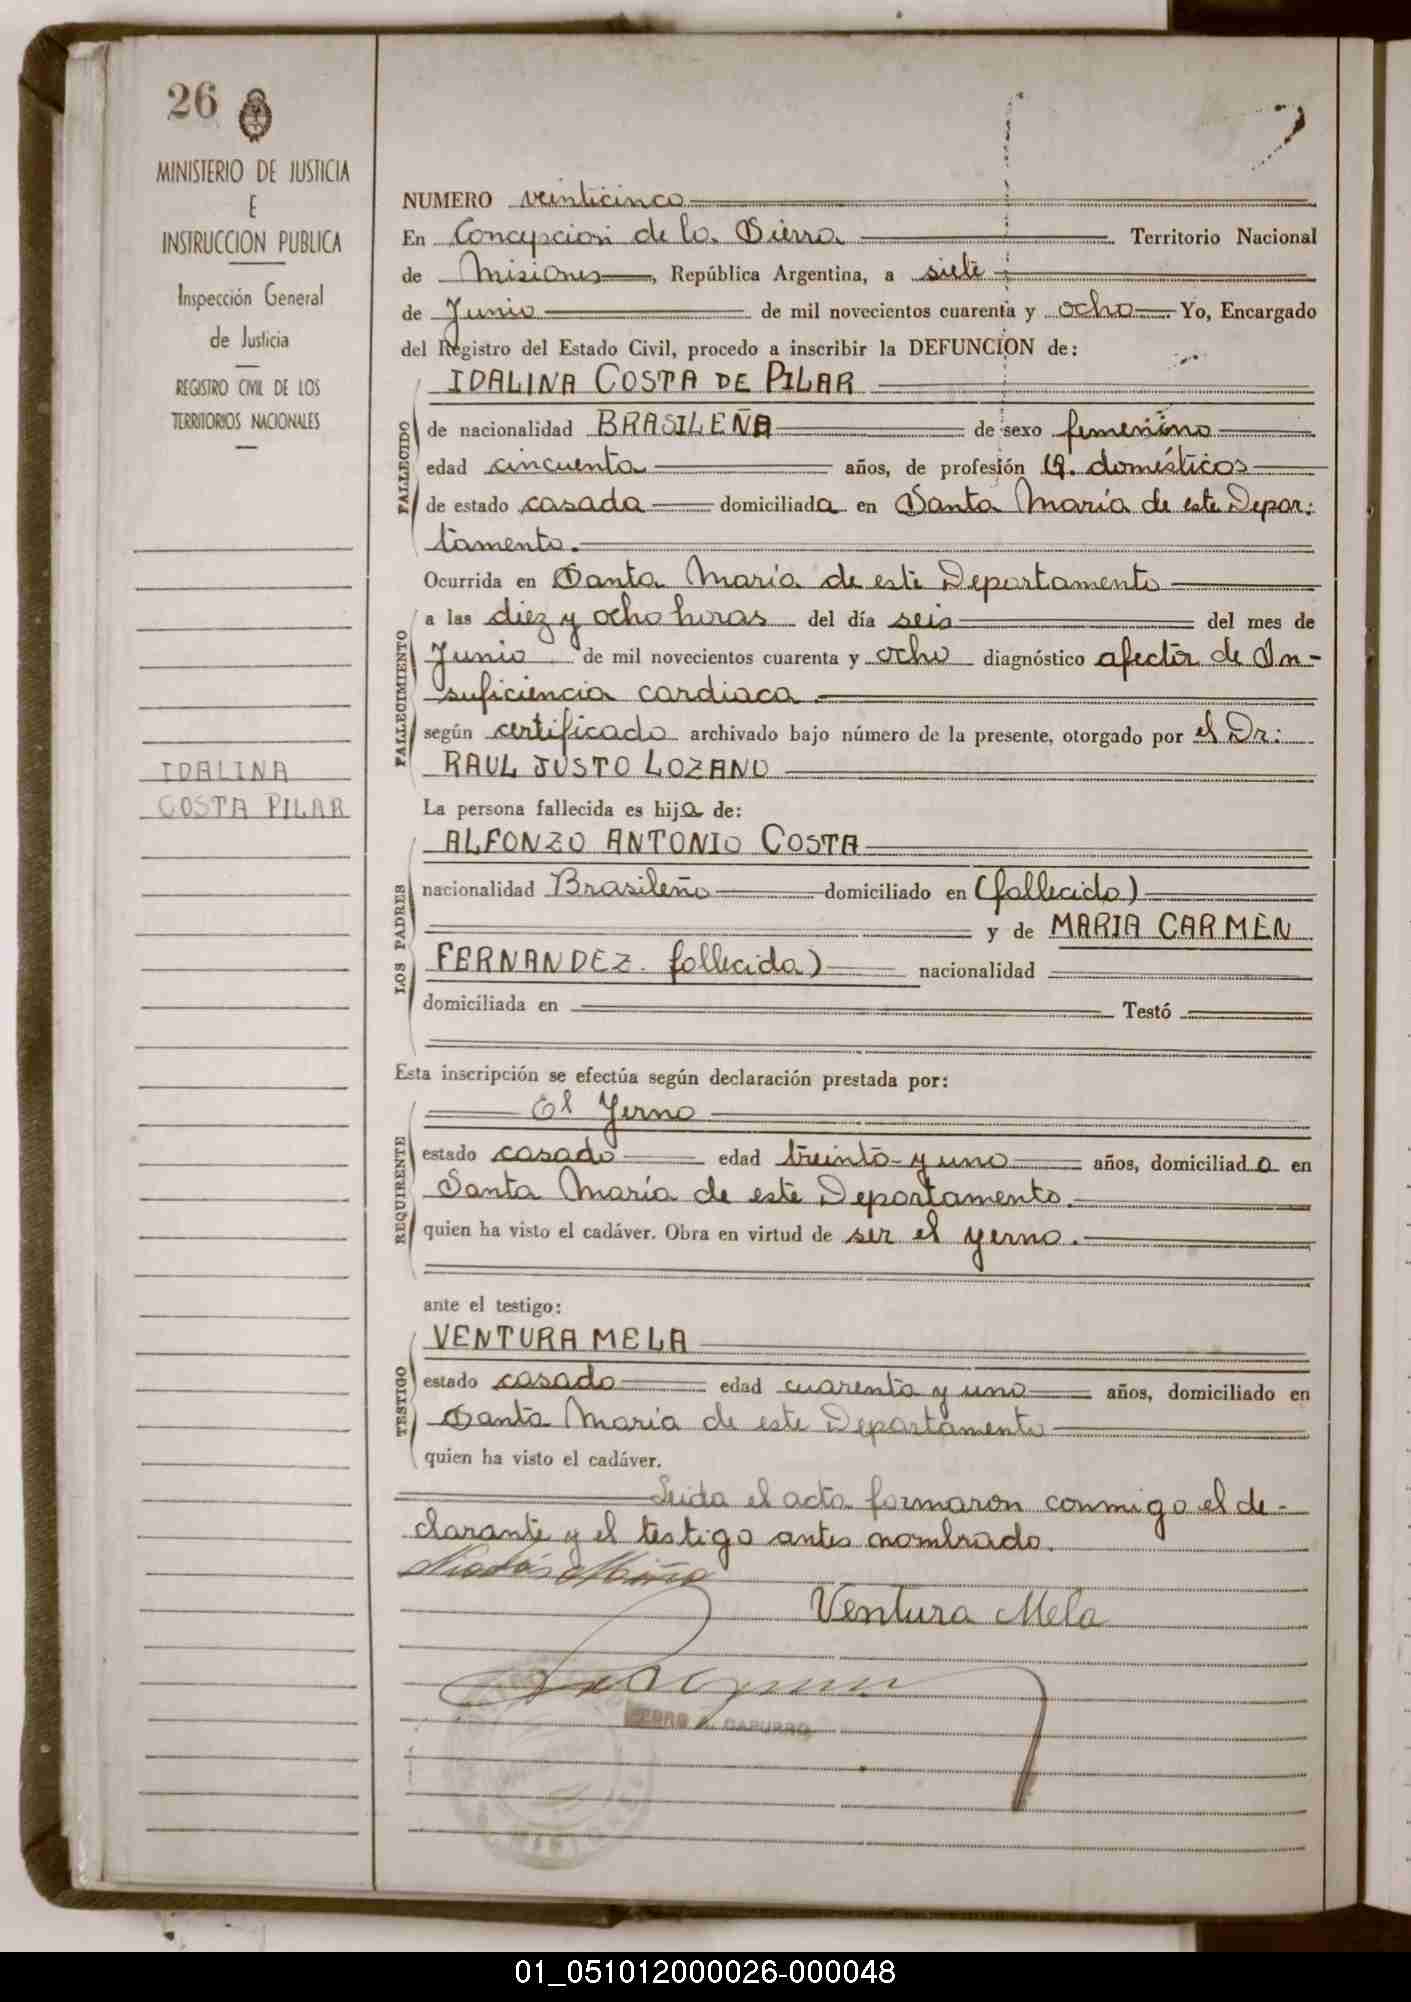 26
MINISTERIO DE JUSTICIA
E
INSTRUCCION PUBLICA
Inspección General
de Justicia
REGISTRO CIVIL DE LOS
TERRITORIOS NACIONALES
IDALINA
COSTA PILAR
NUMERO veinticinco
En Concepcion de la Sierra Territorio Nacional
de Misiones, República Argentina, a siete
de Junio de mil novecientos cuarenta y ocho Yo, Encargado
del Registro del Estado Civil, procedo a inscribir la DEFUNCION de:
IDALINA COSTA DE PILAR
FALLECIDO
de nacionalidad BRASILEÑA de sexo femenino
edad cincuenta años, de profesión Q. domésticos
de estado casada domiciliada en Santa María de este Depar:
tamento.
Ocurrida en Santa María de este Departamento
FALLECIMIENTO
a las diez y ocho horas del día seis del mes de
Junio de mil novecientos cuarenta y ocho diagnóstico afectór de In-
suficiencia cardiaca.
según certificado archivado bajo número de la presente, otorgado por el Dr:
RAUL JUSTO LOZANO
La persona fallecida es hija de:
LOS PADRES
ALFONZO ANTONIO COSTA
nacionalidad Brasileño domiciliado en (fallecido)
y de MARIA CARMEN
FERNANDEZ. fallecida) nacionalidad
domiciliada en Testó
Esta inscripción se efectúa según declaración prestada por:
REQUIRENTE
El Yerno
estado casado edad treinta y uno años, domiciliado en
Santa María de este Departamento.
quien ha visto el cadáver. Obra en virtud de ser el yerno.
ante el testigo:
TESTIGO
VENTURA MELA
estado casado edad cuarenta y uno años, domiciliado en
Santa María de este Departamento
quien ha visto el cadáver.
Leida el acta formaron conmigo el de-
clarante y el testigo antes nombrado.
Ventura Mela
CAPURRO
01_051012000026-000048